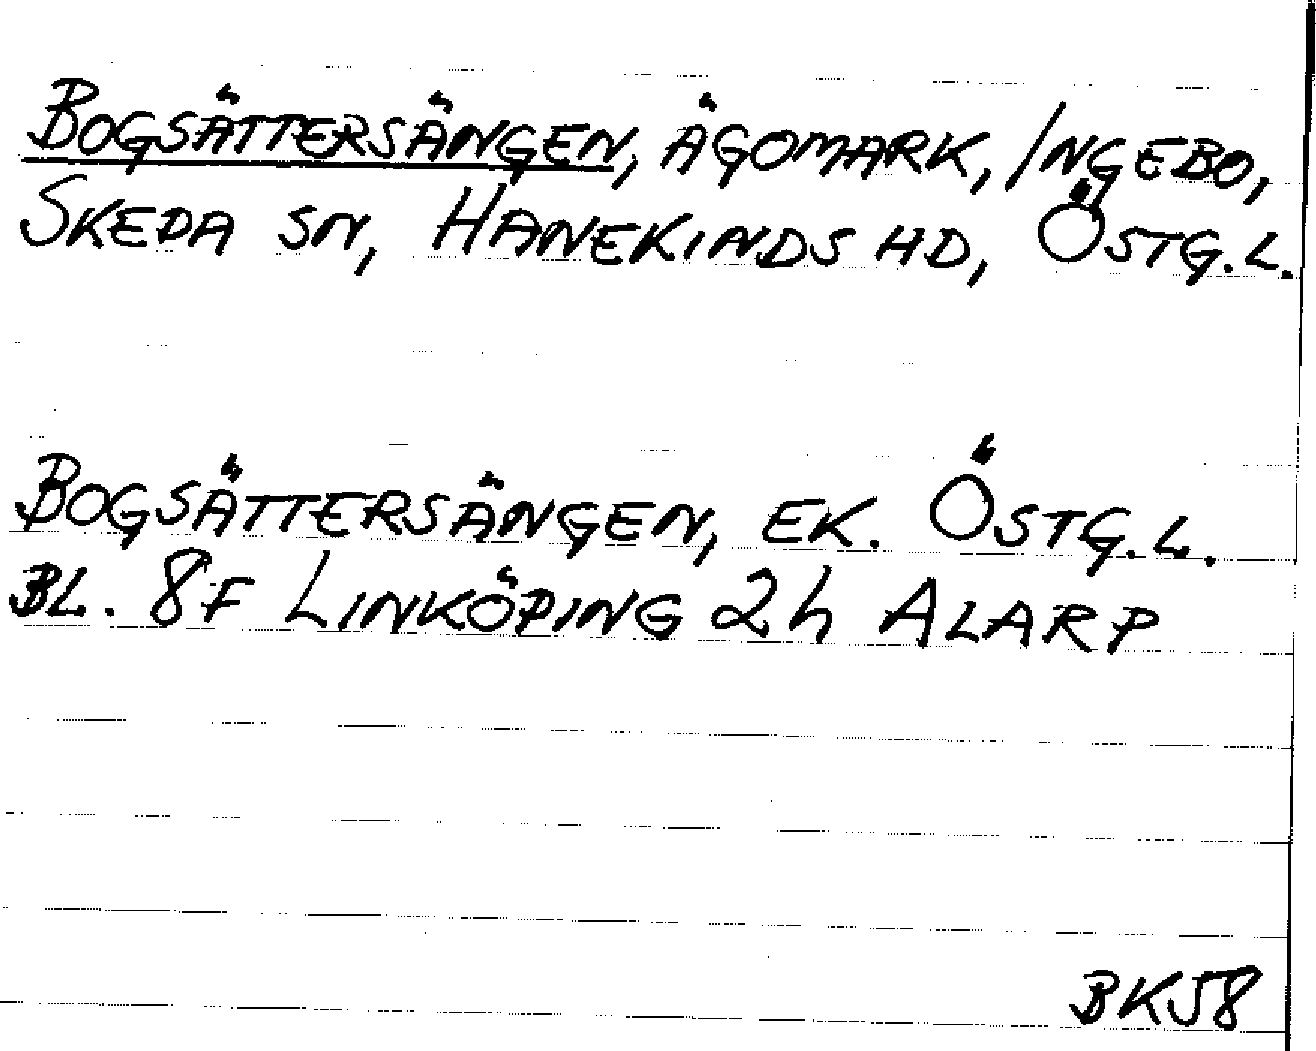 BOGSÄTTERSÄNGEN, ÄGOMARK, INGEBO,
SKEDA SN, HANEKINDS HD, ÖSTG.L.
BOGSÄTTERSÄNGEN, EK. ÖSTG.L.
BL. 8F LINKÖPING 2h ALARP
BK58